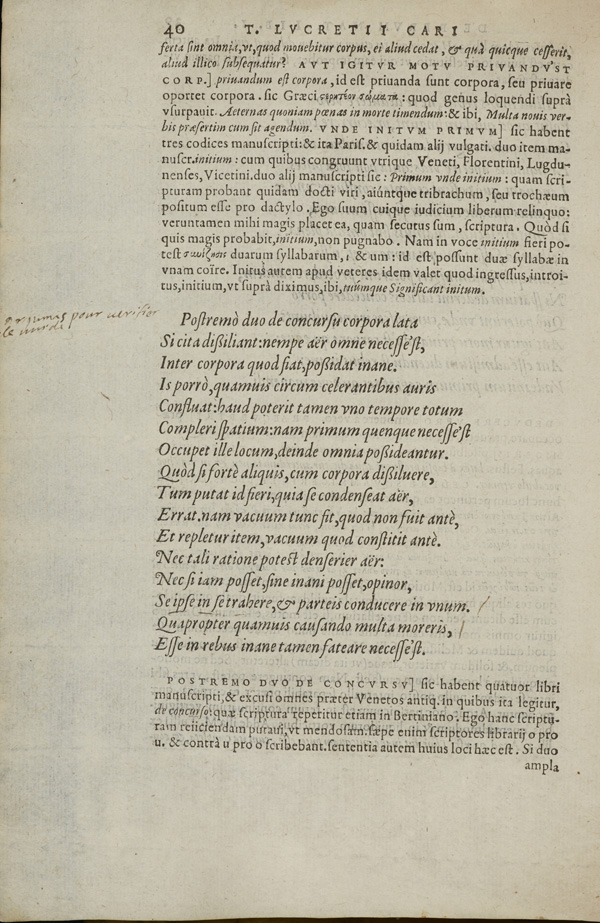 40 T. LVCRETII CARI
ferta sint omnia, vt, quod mouebitur corpus, ei aliud cedat, & quà quicque cesserit,
aliud illico subsequatur? AVT IGITVR MOTV PRIVANDV'ST
CORP.] priuandum est corpora, id est priuanda sunt corpora, seu priuare
oportet corpora. sic Græci σερητέον σώματα: quod genus loquendi suprà
vsurpauit. Aeternas quoniam pœnas in morte timendum: & ibi, Multa nouis ver-
bis præsertim cum sit agendum. VNDE INITVM PRIMVM] sic habent
tres codices manuscripti: & ita Paris. & quidam alij vulgati. duo item ma-
nuscr. initium: cum quibus congruunt vtrique Veneti, Florentini, Lugdu-
nenses, Vicetini. duo alij manuscripti sic: Primum vnde initium: quam scri-
pturam probant quidam docti viri, aiúntque tribrachum, seu trochæum
positum esse pro dactylo. Ego suum cuique iudicium liberum relinquo:
veruntamen mihi magis placet ea, quam secutus sum, scriptura. Quòd si
quis magis probabit, initium, non pugnabo. Nam in voce initium fieri po-
test συνίζησις duarum syllabarum, ı & um: id est possunt duæ syllabæ in
vnam coïre. Initus autem apud veteres idem valet quod ingressus, introi-
tus, initium, vt suprà diximus, ibi, tuúmque Significant initum.
pour verifier
Postremò duo de concursu corpora lata
Si cita dißiliant: nempe aër omne necesse'st,
Inter corpora quod fiat, poßidat inane.
Is porrò, quamuis circum celerantibus auris
Confluat: haud poterit tamen vno tempore totum
Compleri spatium: nam primum quenque necesse'st
Occupet ille locum, deinde omnia poßideantur.
Quòd si fortè aliquis, cum corpora dißiluere,
Tum putat id fieri, quia se condenseat aër,
Errat. nam vacuum tunc fit, quod non fuit antè,
Et repletur item, vacuum quod constitit antè.
Nec tali ratione potest denserier aër:
Nec si iam posset, sine inani posset, opinor,
Se ipse in se trahere, & parteis conducere in vnum. /
Quapropter quamuis causando multa moreris, /
Esse in rebus inane tamen fateare necesse'st.
POSTREMO DVO DE CONCVRSV] sic habent quatuor libri
manuscripti, & excusi omnes præter Venetos antiq. in quibus ita legitur,
de concurso: quæ scriptura reperitur etiam in Bertiniano. Ego hanc scriptu-
ram reiiciendam putaui, vt mendosam. sæpe enim scriptores librarij o pro
u. & contrà u pro o scribebant. sententia autem huius loci hæc est. Si duo
ampla